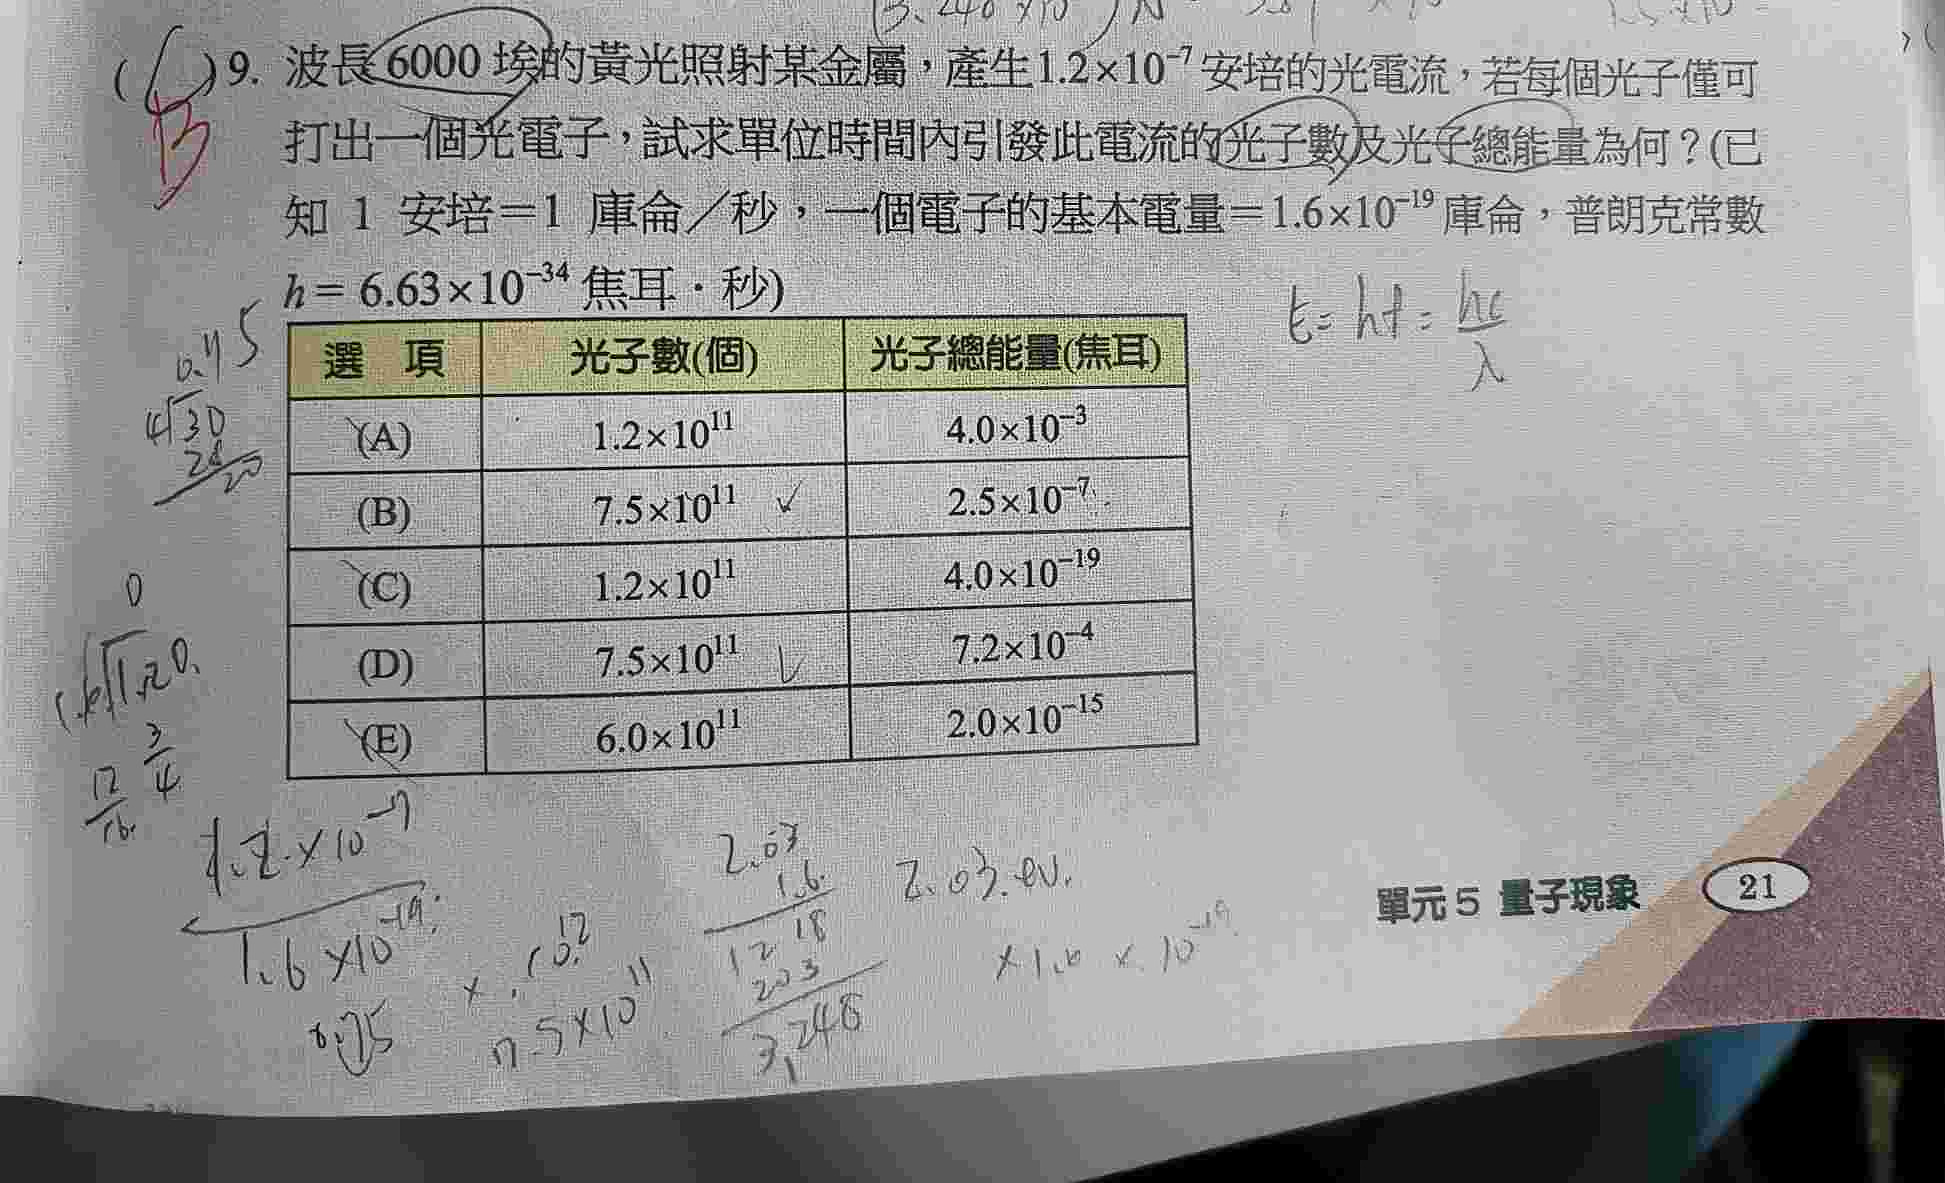 (3.248×10 )N
( )9. 波長6000埃的黃光照射某金屬，產生1.2×10⁻⁷安培的光電流，若每個光子僅可
B
打出一個光電子，試求單位時間內引發此電流的光子數及光子總能量為何？(已
知 1 安培＝1 庫侖／秒，一個電子的基本電量＝1.6×10⁻¹⁹庫侖，普朗克常數
h = 6.63×10⁻³⁴ 焦耳．秒)
E = hf = hc/λ
選 項 光子數(個) 光子總能量(焦耳)
(A) 1.2×10¹¹ 4.0×10⁻³
(B) 7.5×10¹¹ ✓ 2.5×10⁻⁷
(C) 1.2×10¹¹ 4.0×10⁻¹⁹
(D) 7.5×10¹¹ ✓ 7.2×10⁻⁴
(E) 6.0×10¹¹ 2.0×10⁻¹⁵
0.75
4 30
28
20
0
1.6 1.20.
3/4
12/16.
1.2×10⁻⁷
1.6×10⁻¹⁹
0.75
× 10¹²
7.5×10¹¹
2.03
1.6
12 18
203
3,248
2.03.ev.
×1.6 × 10⁻¹⁹
單元 5 量子現象 21